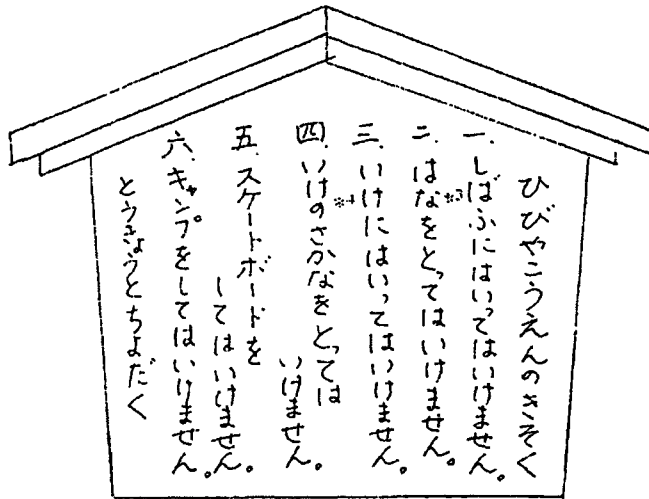 ひびやこうえんのきそく
一、しばふにはいってはいけません。
二、はなをとってはいけません。
*3
三、いけにはいってはいけません。
*4
四、いけのさかなをとっては
いけません。
五、スケートボードを
してはいけません。
六、キャンプをしてはいけません。
とうきょうとちよだく